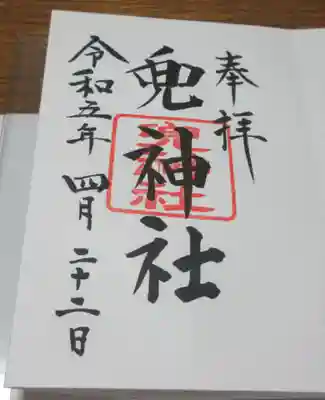 奉拝
兜神社
令和五年 四月 二十二日